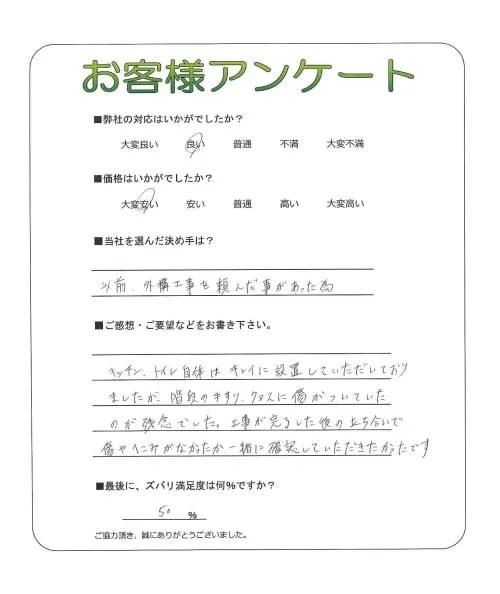 お客様アンケート
■弊社の対応はいかがでしたか？
大変良い 良い 普通 不満 大変不満
■価格はいかがでしたか？
大変安い 安い 普通 高い 大変高い
■当社を選んだ決め手は？
以前、外構工事を頼んだ事があった為
■ご感想・ご要望などをお書き下さい。
キッチン、トイレ自体はキレイに設置していただいており
ましたが、階段の手すり、クロスに傷がついていた
のが残念でした。工事が完了した後の立ち合いで
傷やへこみがなかったか一緒に確認していただきたかったです
■最後に、ズバリ満足度は何%ですか？
50 %
ご協力頂き、誠にありがとうございました。